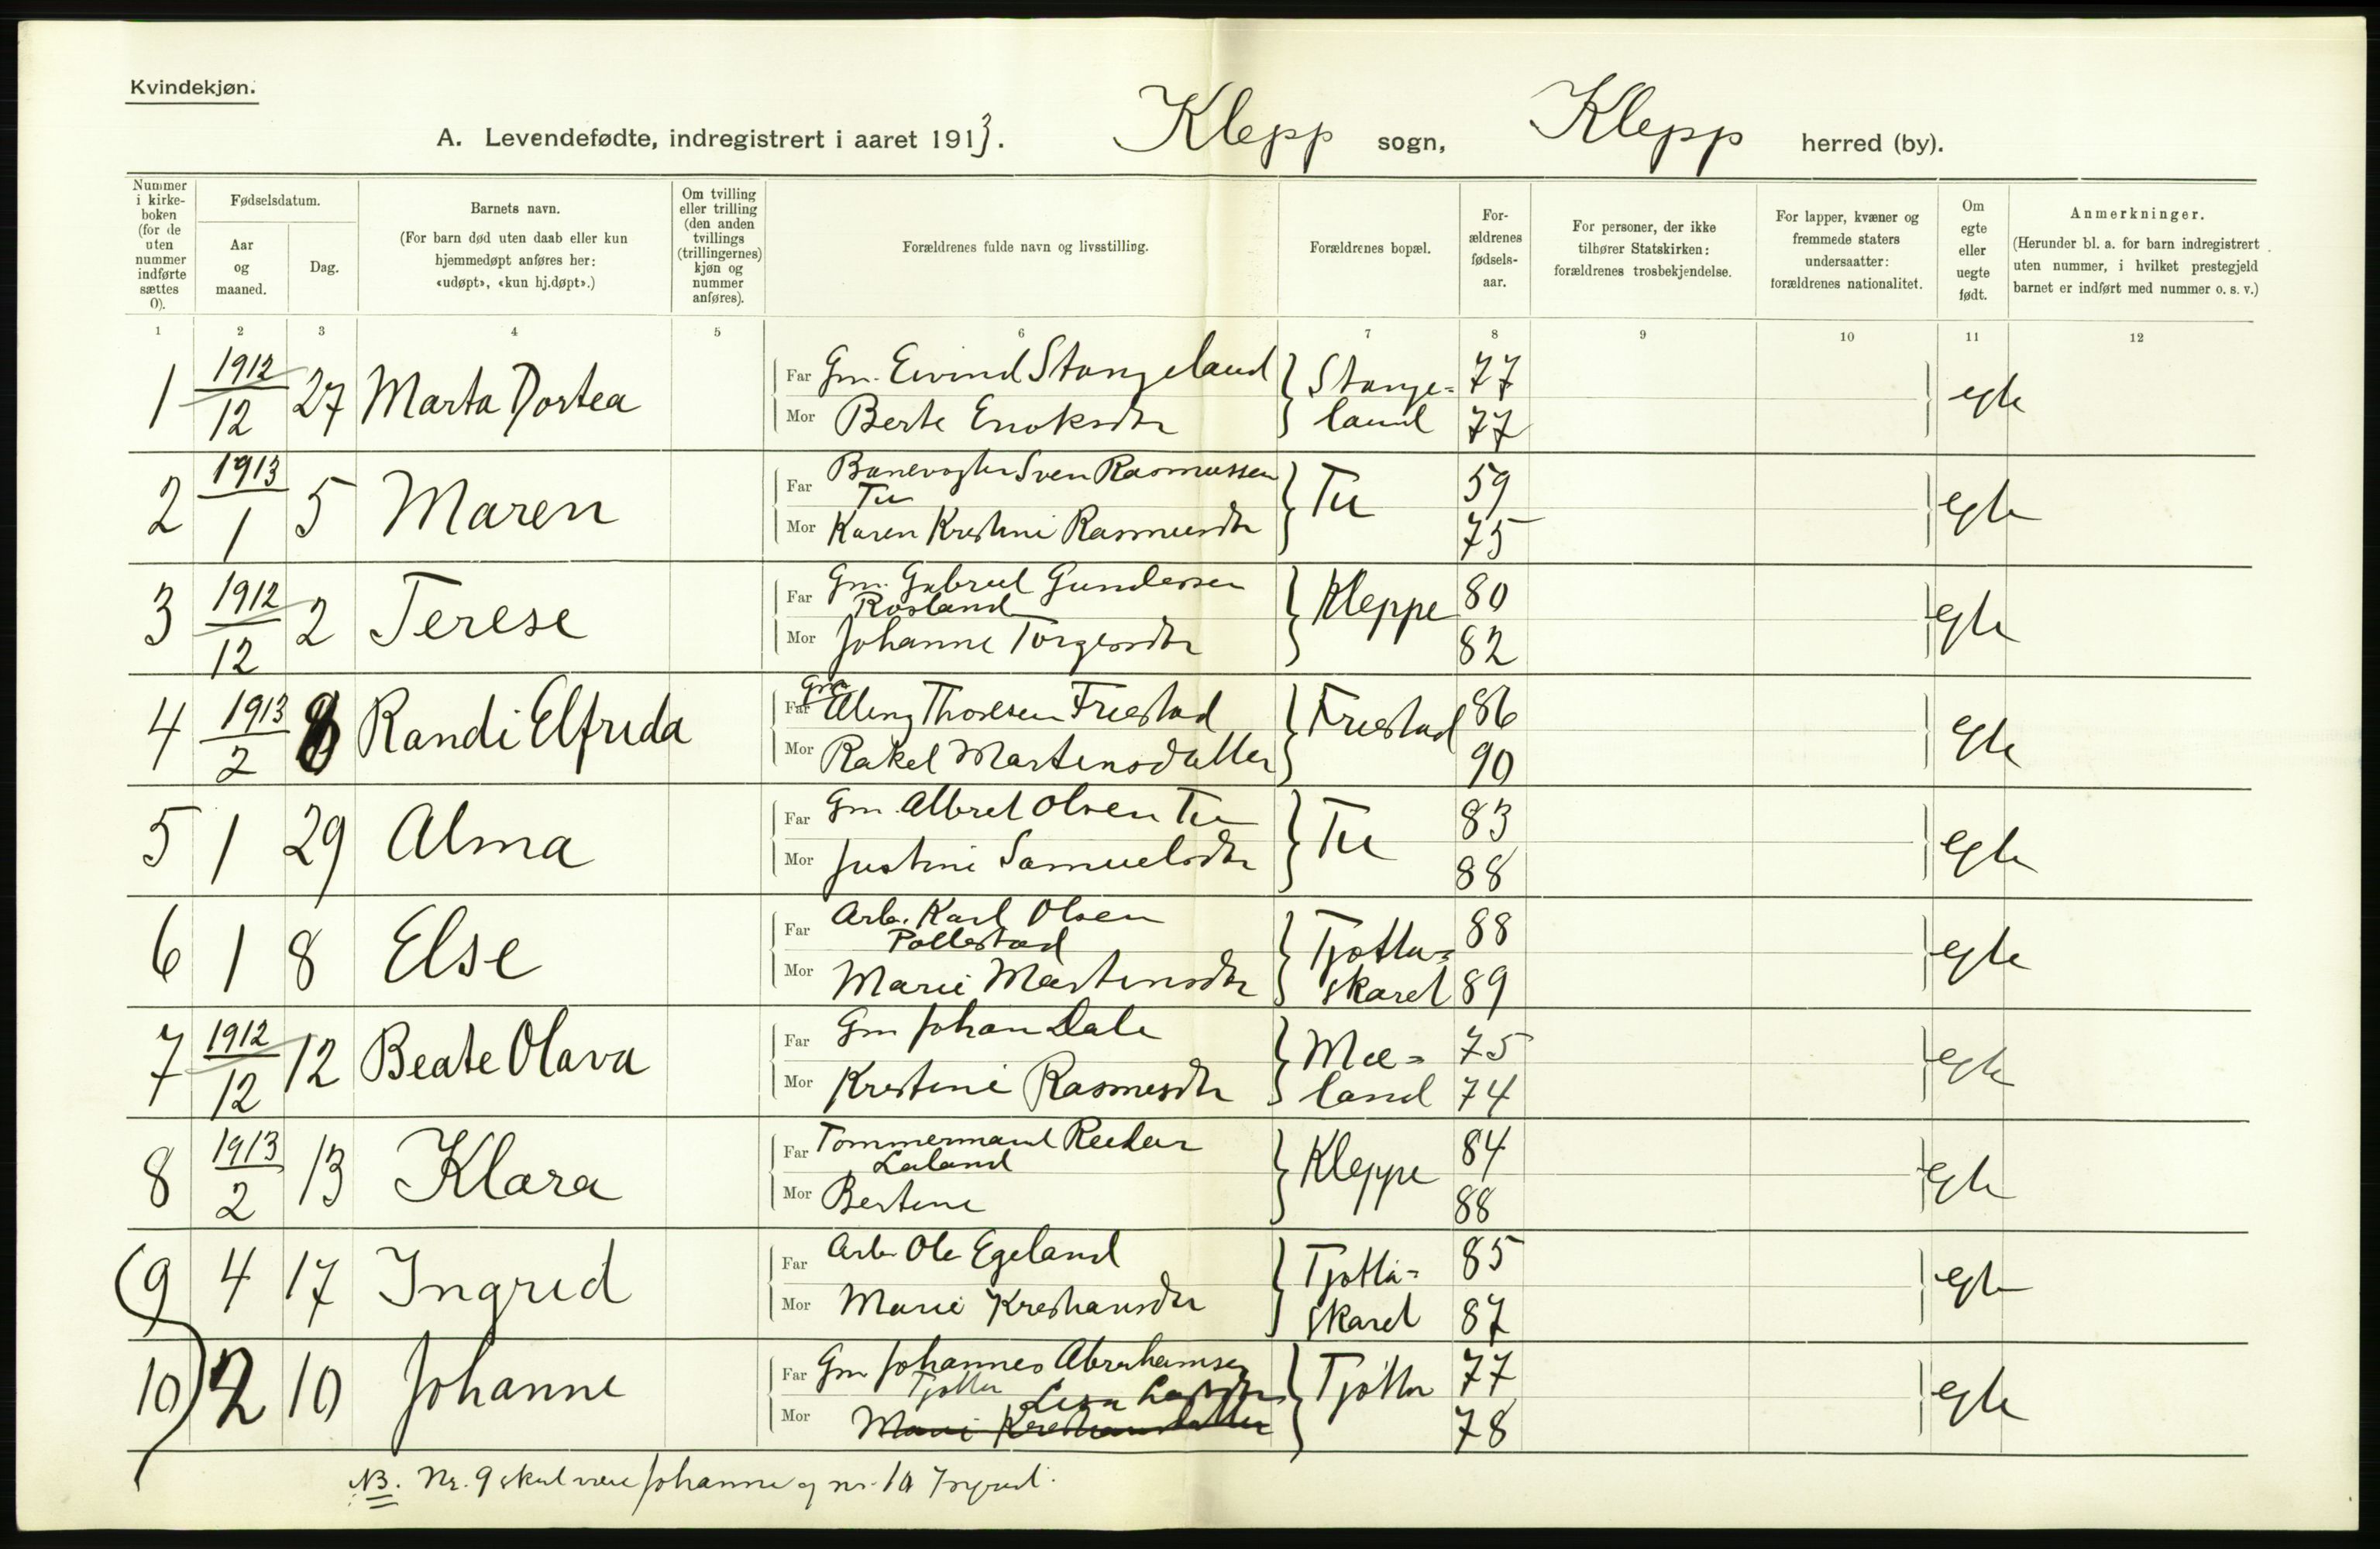 Kvindekjøn.
A. Levendefødte, indregistrert i aaret 1913. Klepp sogn, Klepp herred (by).
Nummer i kirke-boken (for de uten nummer indførte sættes 0).
Fødselsdatum.
Aar og maaned.
Dag.
Barnets navn.
(For barn død uten daab eller kun hjemmedøpt anføres her: «udøpt», «kun hj.døpt».)
Om tvilling eller trilling (den anden tvillings (trillingernes) kjøn og nummer anføres).
Forældrenes fulde navn og livsstilling.
Forældrenes bopæl.
For-ældrenes fødsels-aar.
For personer, der ikke tilhører Statskirken: forældrenes trosbekjendelse.
For lapper, kvæner og fremmede staters undersaatter: forældrenes nationalitet.
Om egte eller uegte født.
Anmerkninger.
(Herunder bl. a. for barn indregistrert uten nummer, i hvilket prestegjeld barnet er indført med nummer o. s. v.)
1 2 3 4 5 6 7 8 9 10 11 12
1 1912/12 27 Marta Dortea Far Gm. Eivind Stangeland Stange= 77 egte
Mor Berte Enoksdtr land 77
2 1913/1 5 Maren Far Banevogter Sven Rasmussen Tu Tu 59 egte
Mor Karen Kristine Rasmusdtr 75
3 1912/12 2 Terese Far Gm. Gabriel Gundersen Rosland Kleppe 80 egte
Mor Johanne Torgersdtr 82
4 1913/2 8 Randi Elfrida Far Gm Thorsen Friestad Friestad 86 egte
Mor Rakel Martinsdatter 90
5 1 29 Alma Far Gm. Albret Olsen Tu Tu 83 egte
Mor Justine Samuelsdtr 88
6 1 8 Else Far Arb. Karl Olsen Pollestad Tjøtta= 88 egte
Mor Marie Martinsdtr skaret 89
7 1912/12 12 Beate Olava Far Gm Johan Dale Mæ= 75 egte
Mor Kristine Rasmusdtr land 74
8 1913/2 13 Klara Far Tømmermand Laland Kleppe 84 egte
Mor Bertine 88
9 4 17 Ingrid Far Arb. Ole Egeland Tjøtta= 85 egte
Mor Marie Kristiansdtr skaret 87
10 2 10 Johanne Far Gm Johannes Abrahamsen Tjøtta Tjøtta 77 egte
Mor Lisa Marie Kristiansdatter 78
NB. Nr. 9 skal være Johanne og nr. 10 Ingrid.